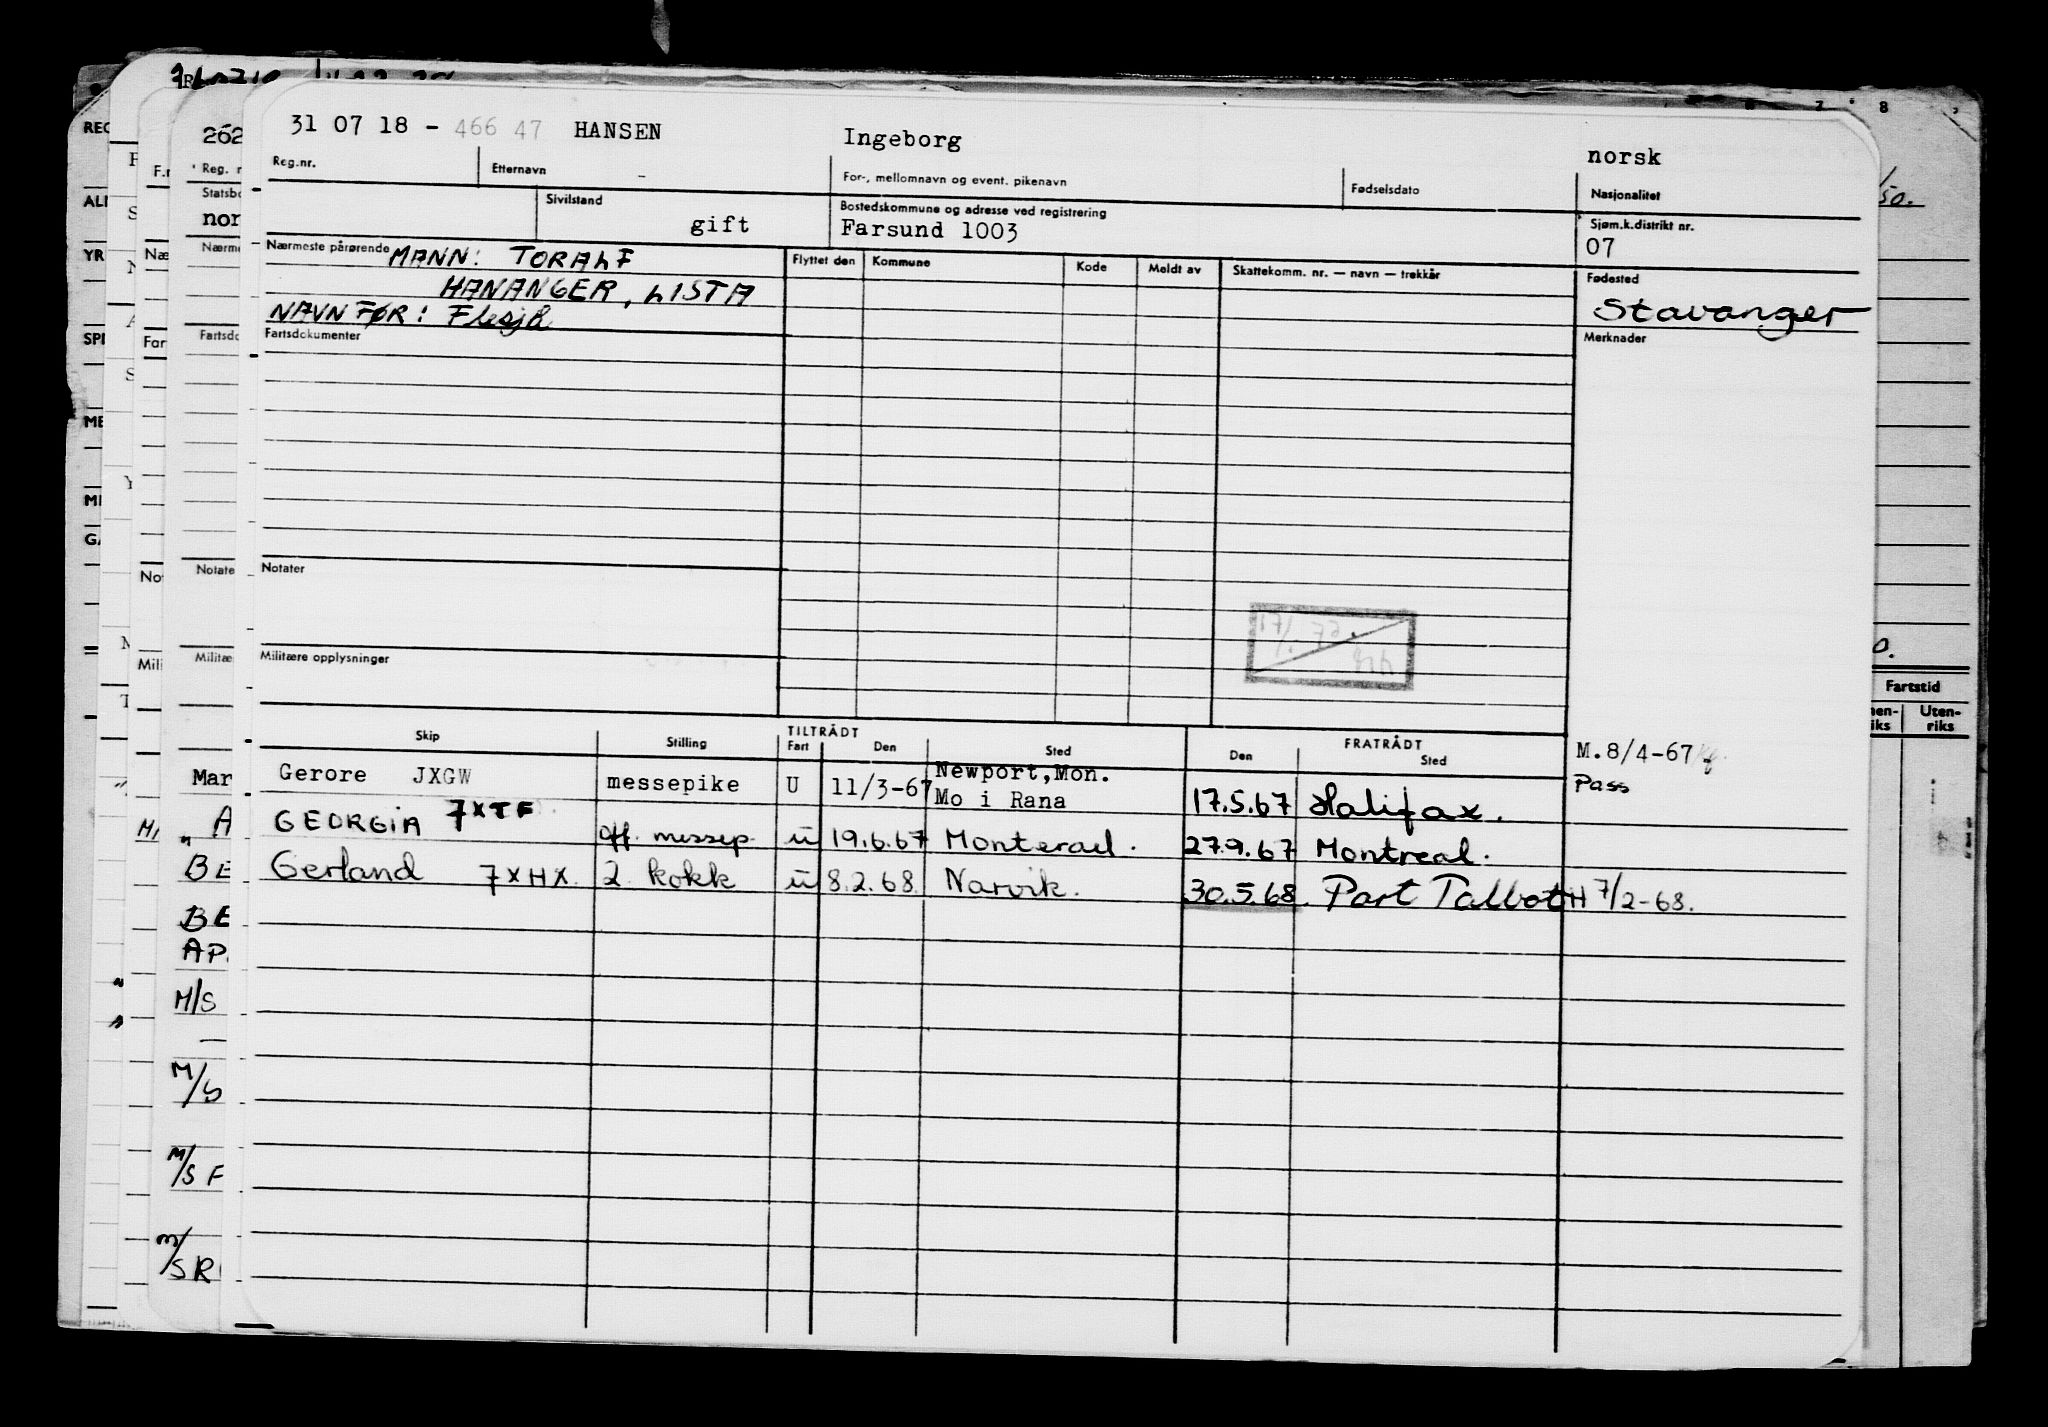 31 07 18 - 466 47 HANSEN Ingeborg norsk
Reg.nr. Etternavn For-, mellomnavn og event. pikenavn Fødselsdato Nasjonalitet
Sivilstand Bostedskommune og adresse ved registrering Sjøm.k.distrikt nr.
gift Farsund 1003 07
Nærmeste pårørende MANN: TORALF Flyttet den Kommune Kode Meldt av Skattekomm. nr. — navn — trekkår Fødested
HANANGER, LISTA Stavanger
NAVN FØR: Flesjå
Fartsdokumenter Merknader
Notater
Militære opplysninger
Skip Stilling TILTRÅDT FRATRÅDT
Fart Den Sted Den Sted M.8/4-67
Gerore JXGW messepike U 11/3-67 Newport,Mon. Pass
Mo i Rana 17.5.67 Halifax.
GEORGIA 7XTF off. messep. u 19.6.67 Monterael. 27.9.67 Montreal.
Gerland 7XHX. 2. kokk u 8.2.68. Narvik. 30.5.68. Part Talbot H 7/2-68.
262
Reg. n
Statsbo
nor
Nærme
Fartsdo
Notate
Militæ
Mar
BE
BE
AP.
M/S
M/S
M/S F
M/S R
Fartstid
Uten-
riks